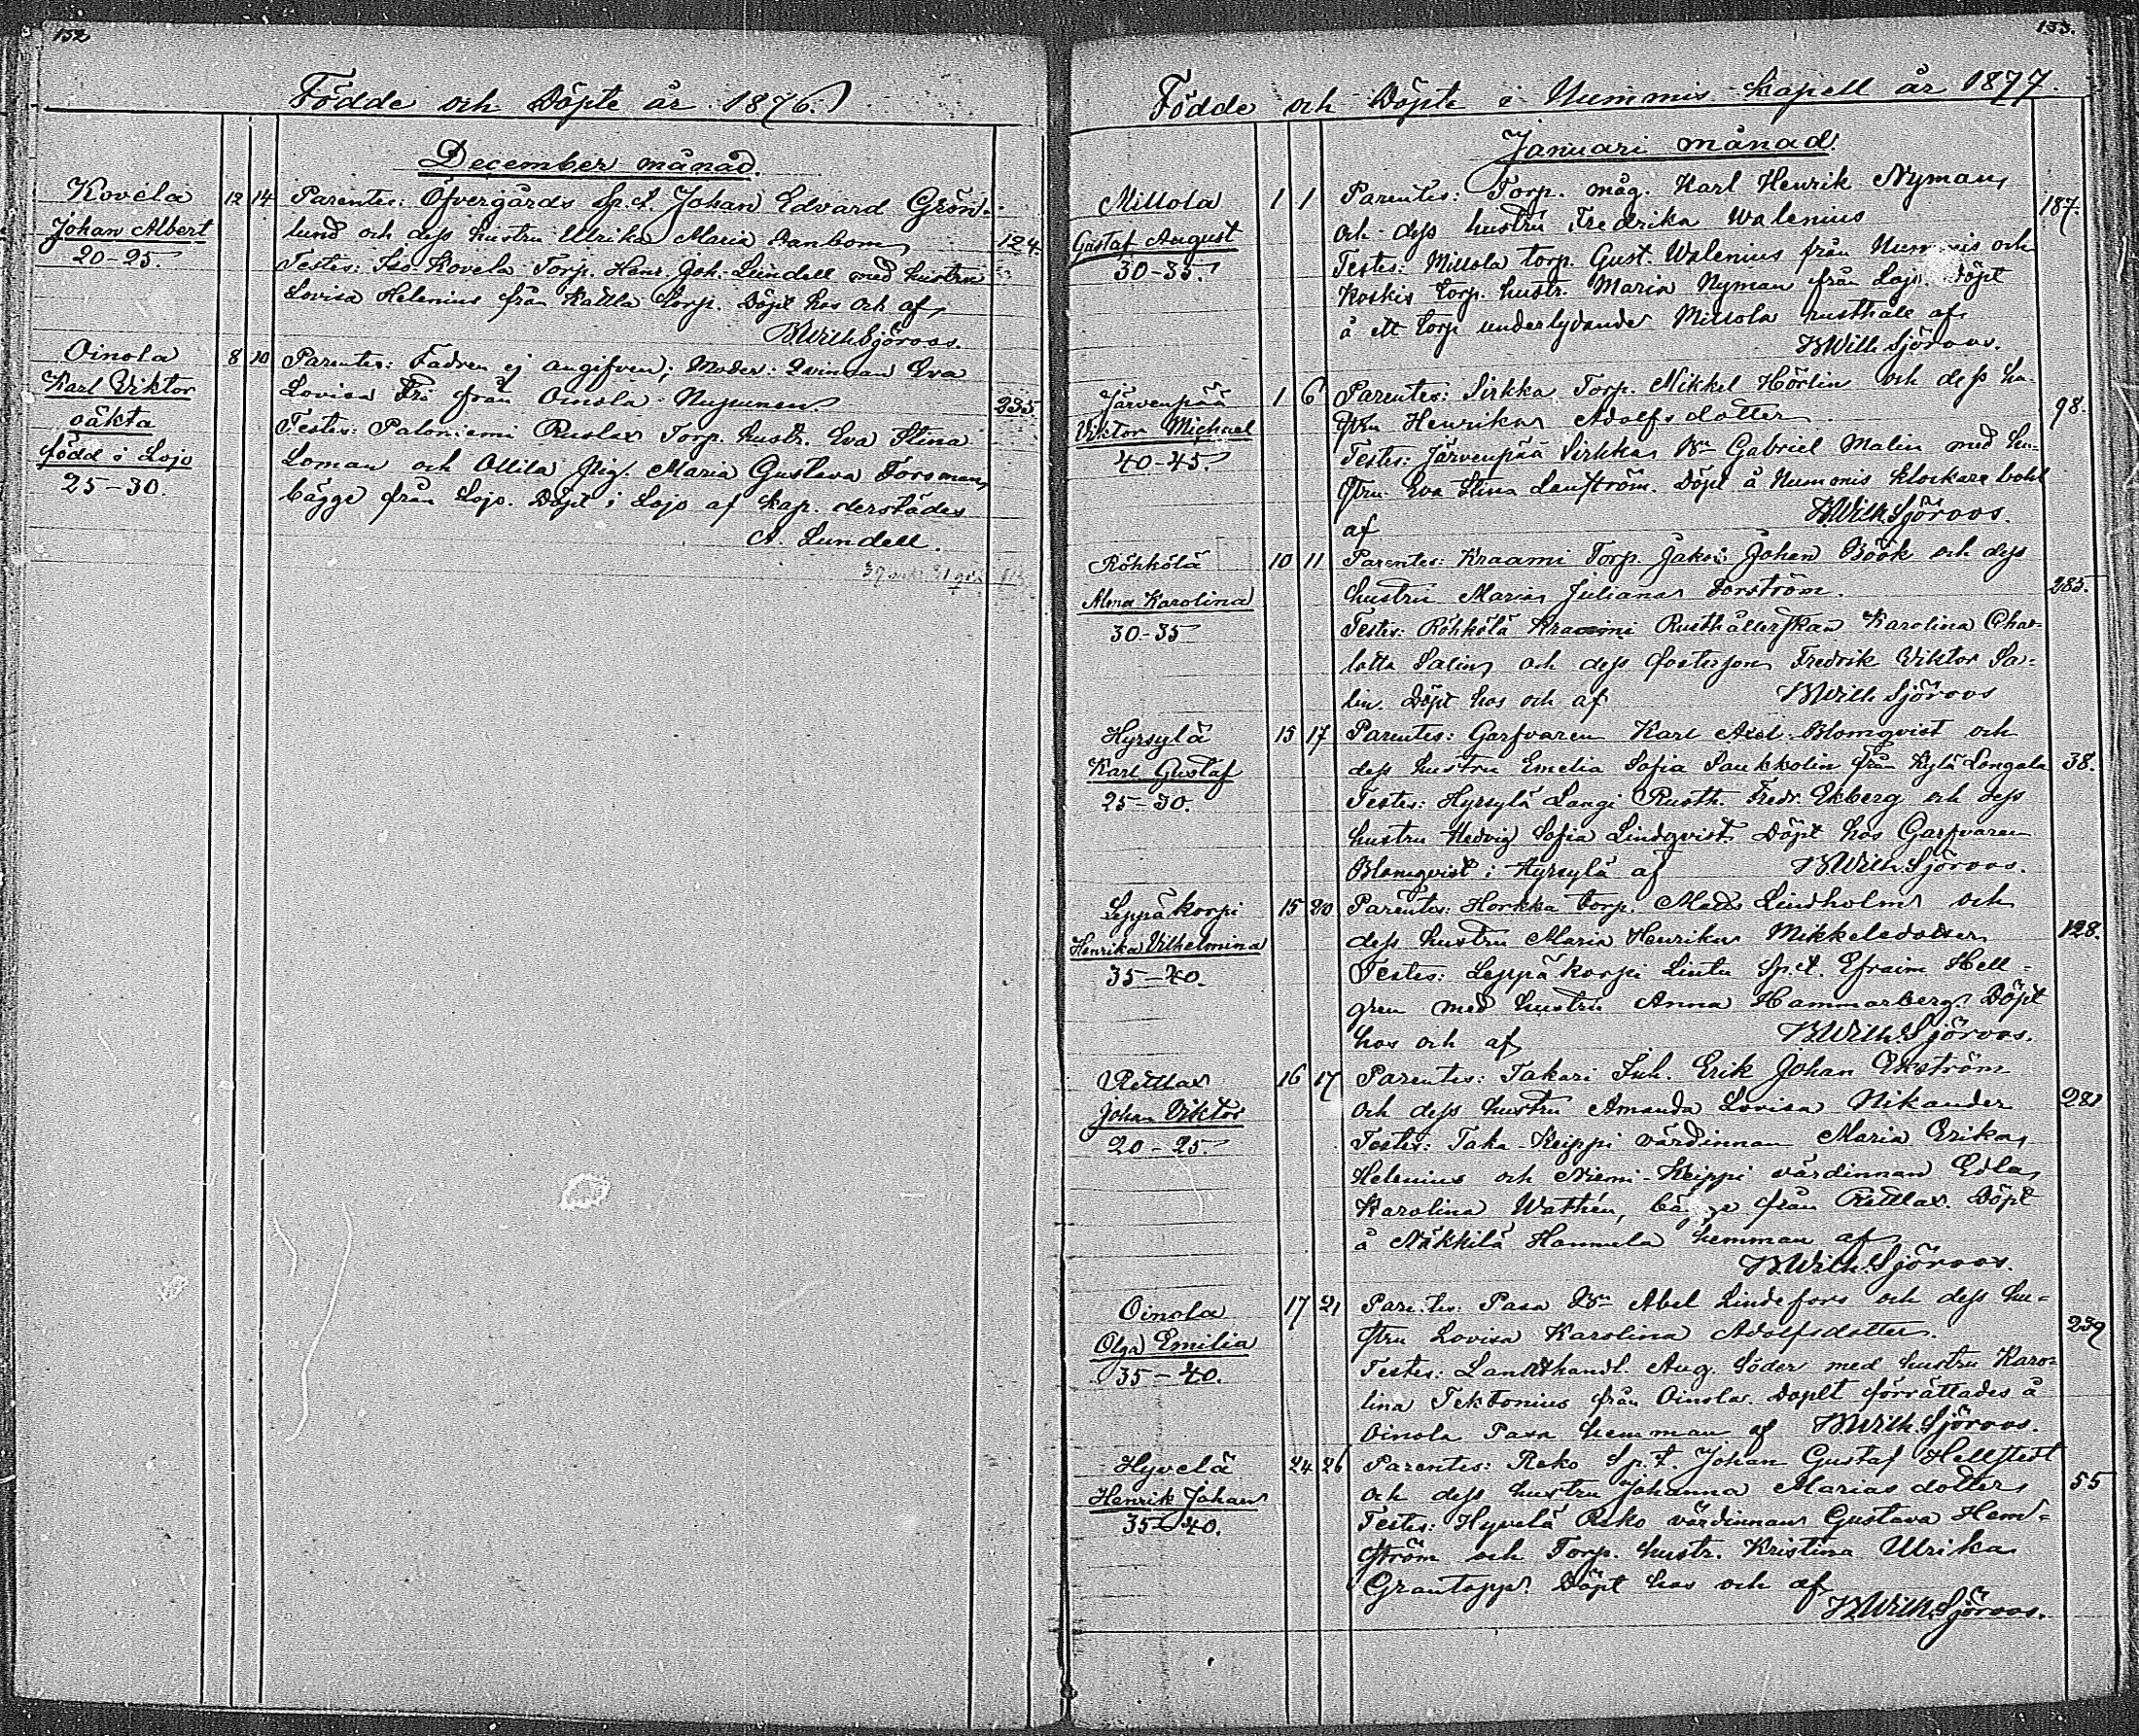 152
Födde och Döpte år 1876.
December månad.
Kovela 12 14 Parentes: Öfvergårds Sp.t. Johan Edvard Grön-
Johan Albert lund och dess hustru Ulrika Maria 124.
20-25. Testes: Iso-Kovela Torp. Henr. Joh. Lundell med hustru
Lovisa Helenius från Kattla torp. Döpt hos och af
BWilh.Sjöroos.
Oinola 8 10 Parentes: Fadren ej angifven; Moder: Qvinnan Eva
Karl Viktor Lovisa Fri från Oinola 235.
oäkta Testes: Paloniemi Ruslax Torp. hustr. Eva Stina
född i Lojo Loman och Ollila Pig. Maria Gustava Forsman,
25-30. bägge från Lojo. Döpt i Lojo af Kap. derstädes
A. Lundell.
133.
Födde och Döpte i Nummis Kapell år 1877.
Januari månad.
Millola 1 1 Parentes: Torp. måg. Karl Henrik Nyman 187.
Gustaf August och dess hustru Fredrika Walenius
30-35. Testes: Millola torp. Gust. Walenius från Nummis och
Koskis torp. hustr. Maria Nyman från Lojo. Döpt
å ett torp underlydande Millola rusthåll af
BWilh Sjöroos.
Järvenpää 1 6 Parentes: Sirkka Torp. Mikkel Hörlin och dess hu- 98.
Viktor Michael stru Henrika Adolfsdotter
40-45. Testes: Järvenpää Sirkka Bn Gabriel Malin med hu-
stru Eva Stina Laurström. Döpt å Nummis klockare bohl
af BWilh.Sjöroos.
Röhkölä 10 11 Parentes: Kraami Torp. Jakob Johan Böök och dess
Alma Karolina hustru Maria Juliana Forström. 285.
30-35 Testes: Röhkölä Kraami Rusthållerskan Karolina Char-
lotta Salin och dess fosterson Fredrik Viktor Sa-
lin. Döpt hos och af BWilh Sjöroos
Hyrsylä 15 17 Parentes: Garfvaren Karl Axel Blomqvist och
Karl Gustaf dess hustru Emelia Sofia Paukkolin från Kylä Longala 38.
25-30. Testes: Hyrsylä Langi Rusth. Fredr. Ekberg och dess
hustru Hedvig Sofia Lindqvist. Döpt hos Garfvaren
Blomqvist i Hyrsylä af BWilh.Sjöroos.
Leppäkorpi 15 20 Parentes: Horkka torp. Mats Lindholm och
Henrika Vilhelmina dess hustru Maria Henrika Mikkelsdotter 128.
35-40. Testes: Leppäkorpi Lintu Sp.t. Efraim Hell-
gren med hustru Anna Hammarberg. Döpt
hos och af BWilh.Sjöroos.
Retlax 16 17 Parentes: Takari Inh. Erik Johan Ekström
Johan Viktor och dess hustru Amanda Lovisa Nikander 281
20-25. Testes: Taka-Keippi värdinnan Maria Erika
Helenius och Niemi-Keippi värdinnan Edla
Karolina Wathén, bägge från Retlax. Döpt
å Näkkilä Hannula hemman af
BWilh.Sjöroos.
Oinola 17 21 Parentes: Paxa Bn Abel Lindefors och dess hu-
Olga Emilia stru Lovisa Karolina Adolfsdotter. 239
35-40. Testes: Landthandl. Aug. Söder med hustru Karo-
lina Tektonius från Oinola. Dopet förrättades å
Oinola Paxa hemman af BWilh.Sjöroos.
Hyvelä 24 26 Parentes: Reko Sp.t. Johan Gustaf Hellstedt
Henrik Johan och dess hustru Johanna Mariasdotter 55
35-40. Testes: Hyvelä Reko värdinnan Gustava Hem-
ström och Torp. hustr. Kristina Ulrika
Grantopp. Döpt hos och af
BWilh.Sjöroos.